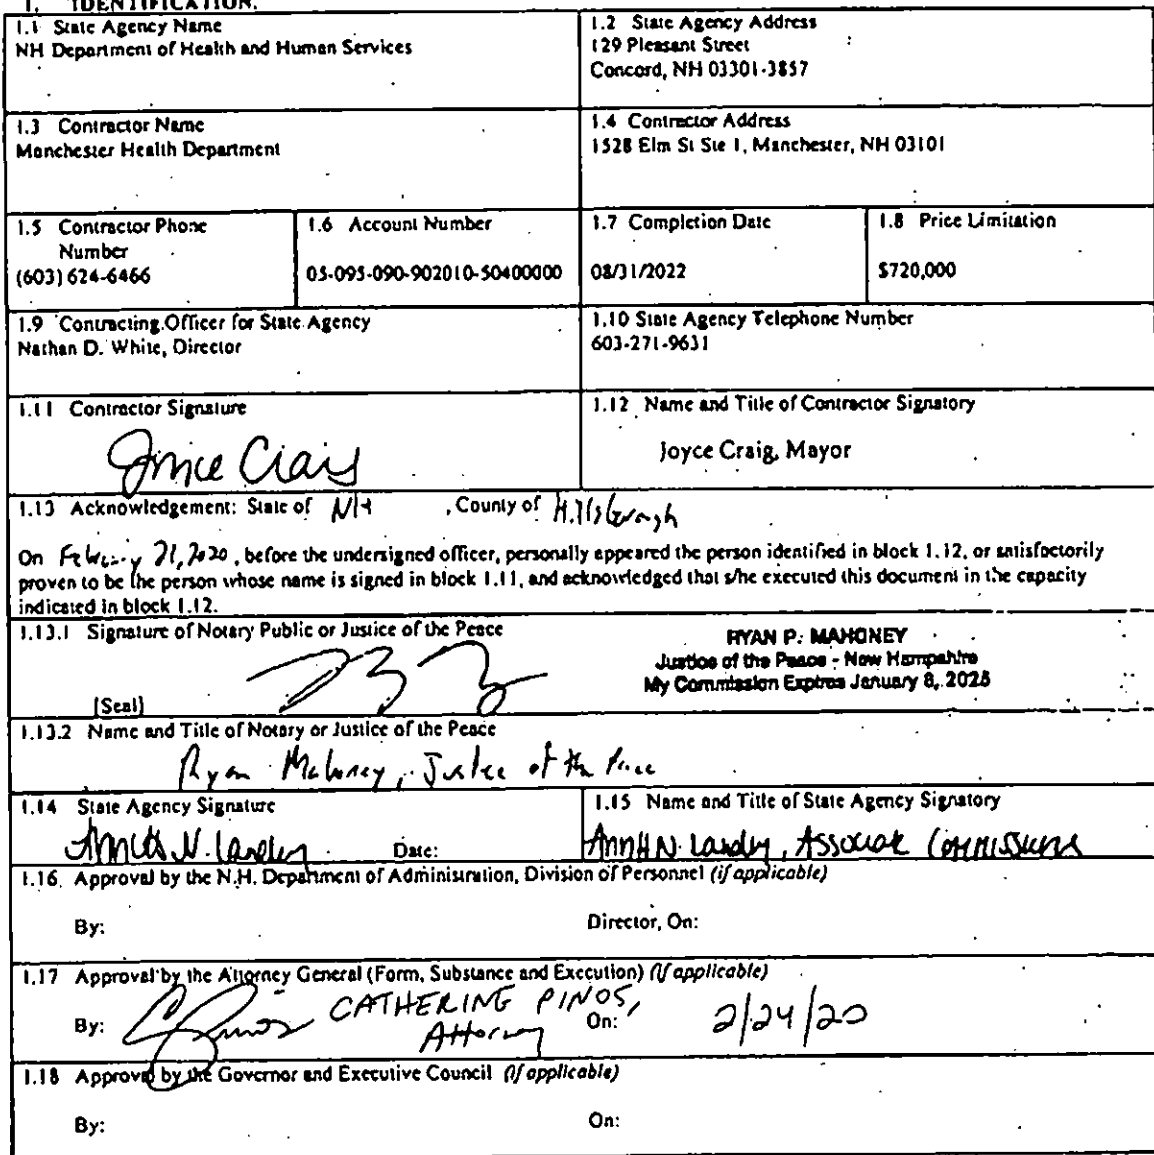 1. IDENTIFICATION.
1.1 State Agency Name
NH Department of Health and Human Services
1.2 State Agency Address
129 Pleasant Street
Concord, NH 03301-3857
1.3 Contractor Name
Manchester Health Department
1.4 Contractor Address
1528 Elm St Ste 1, Manchester, NH 03101
1.5 Contractor Phone
Number
(603) 624-6466
1.6 Account Number
05-095-090-902010-50400000
1.7 Completion Date
08/31/2022
1.8 Price Limitation
$720,000
1.9 Contracting Officer for State Agency
Nathan D. White, Director
1.10 State Agency Telephone Number
603-271-9631
1.11 Contractor Signature
Joyce Craig
1.12 Name and Title of Contractor Signatory
Joyce Craig, Mayor
1.13 Acknowledgement: State of NH , County of Hillsborough
On February 21, 2020, before the undersigned officer, personally appeared the person identified in block 1.12, or satisfactorily
proven to be the person whose name is signed in block 1.11, and acknowledged that s/he executed this document in the capacity
indicated in block 1.12.
1.13.1 Signature of Notary Public or Justice of the Peace
[Seal]
RYAN P. MAHONEY
Justice of the Peace - New Hampshire
My Commission Expires January 8, 2025
1.13.2 Name and Title of Notary or Justice of the Peace
Ryan Mahoney, Justice of the Peace
1.14 State Agency Signature
Landry Date:
1.15 Name and Title of State Agency Signatory
Ann H N. Landry, Associate Commissioner
1.16 Approval by the N.H. Department of Administration, Division of Personnel (if applicable)
By: Director, On:
1.17 Approval by the Attorney General (Form, Substance and Execution) (if applicable)
By: CATHERINE PINOS, Attorney On: 2/24/20
1.18 Approval by the Governor and Executive Council (if applicable)
By: On: